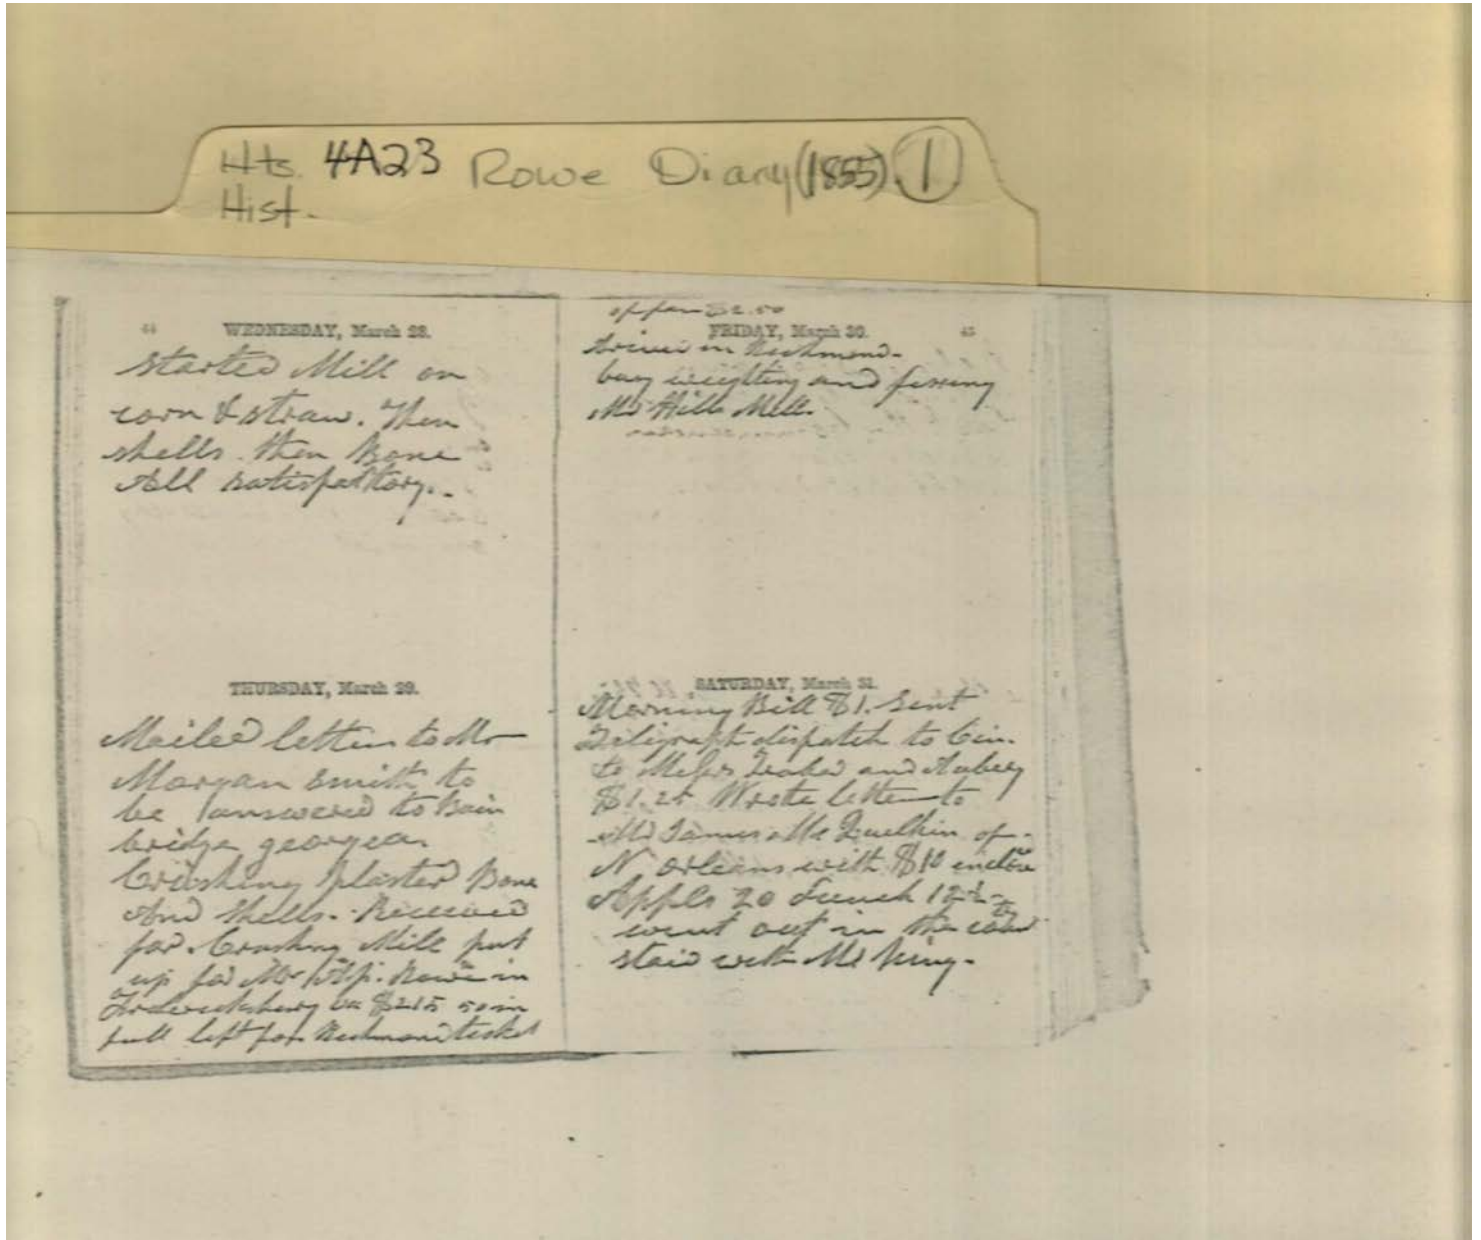 Hts. 4A23 Rowe Diary (1855) 1
Hist.
44 WEDNESDAY, March 28.
Started Mill on
corn & straw. Then
shells. then Bone
All satisfacttory.
THURSDAY, March 29.
Mailed letter to Mr
Morgan Smith to
be answered to Bain
bridge georgea.
Crushing plaster Bone
And Shells. Received
for Crushing Mill put
up for Mr in
Fredericksburg va $215 50 in
full left for Richmond ticket
$2.50
FRIDAY, March 30. 45
in Richmond
and
Mr Hills Mill.
SATURDAY, March 31.
Morning Bill $1. Sent
Teligraph dispatch to Cin.
to Messrs and
$1.25 Wrote letter to
Mr James Mc of
N Orleans with $10
Appls 20 12½
went out in the
staid with Mr King.